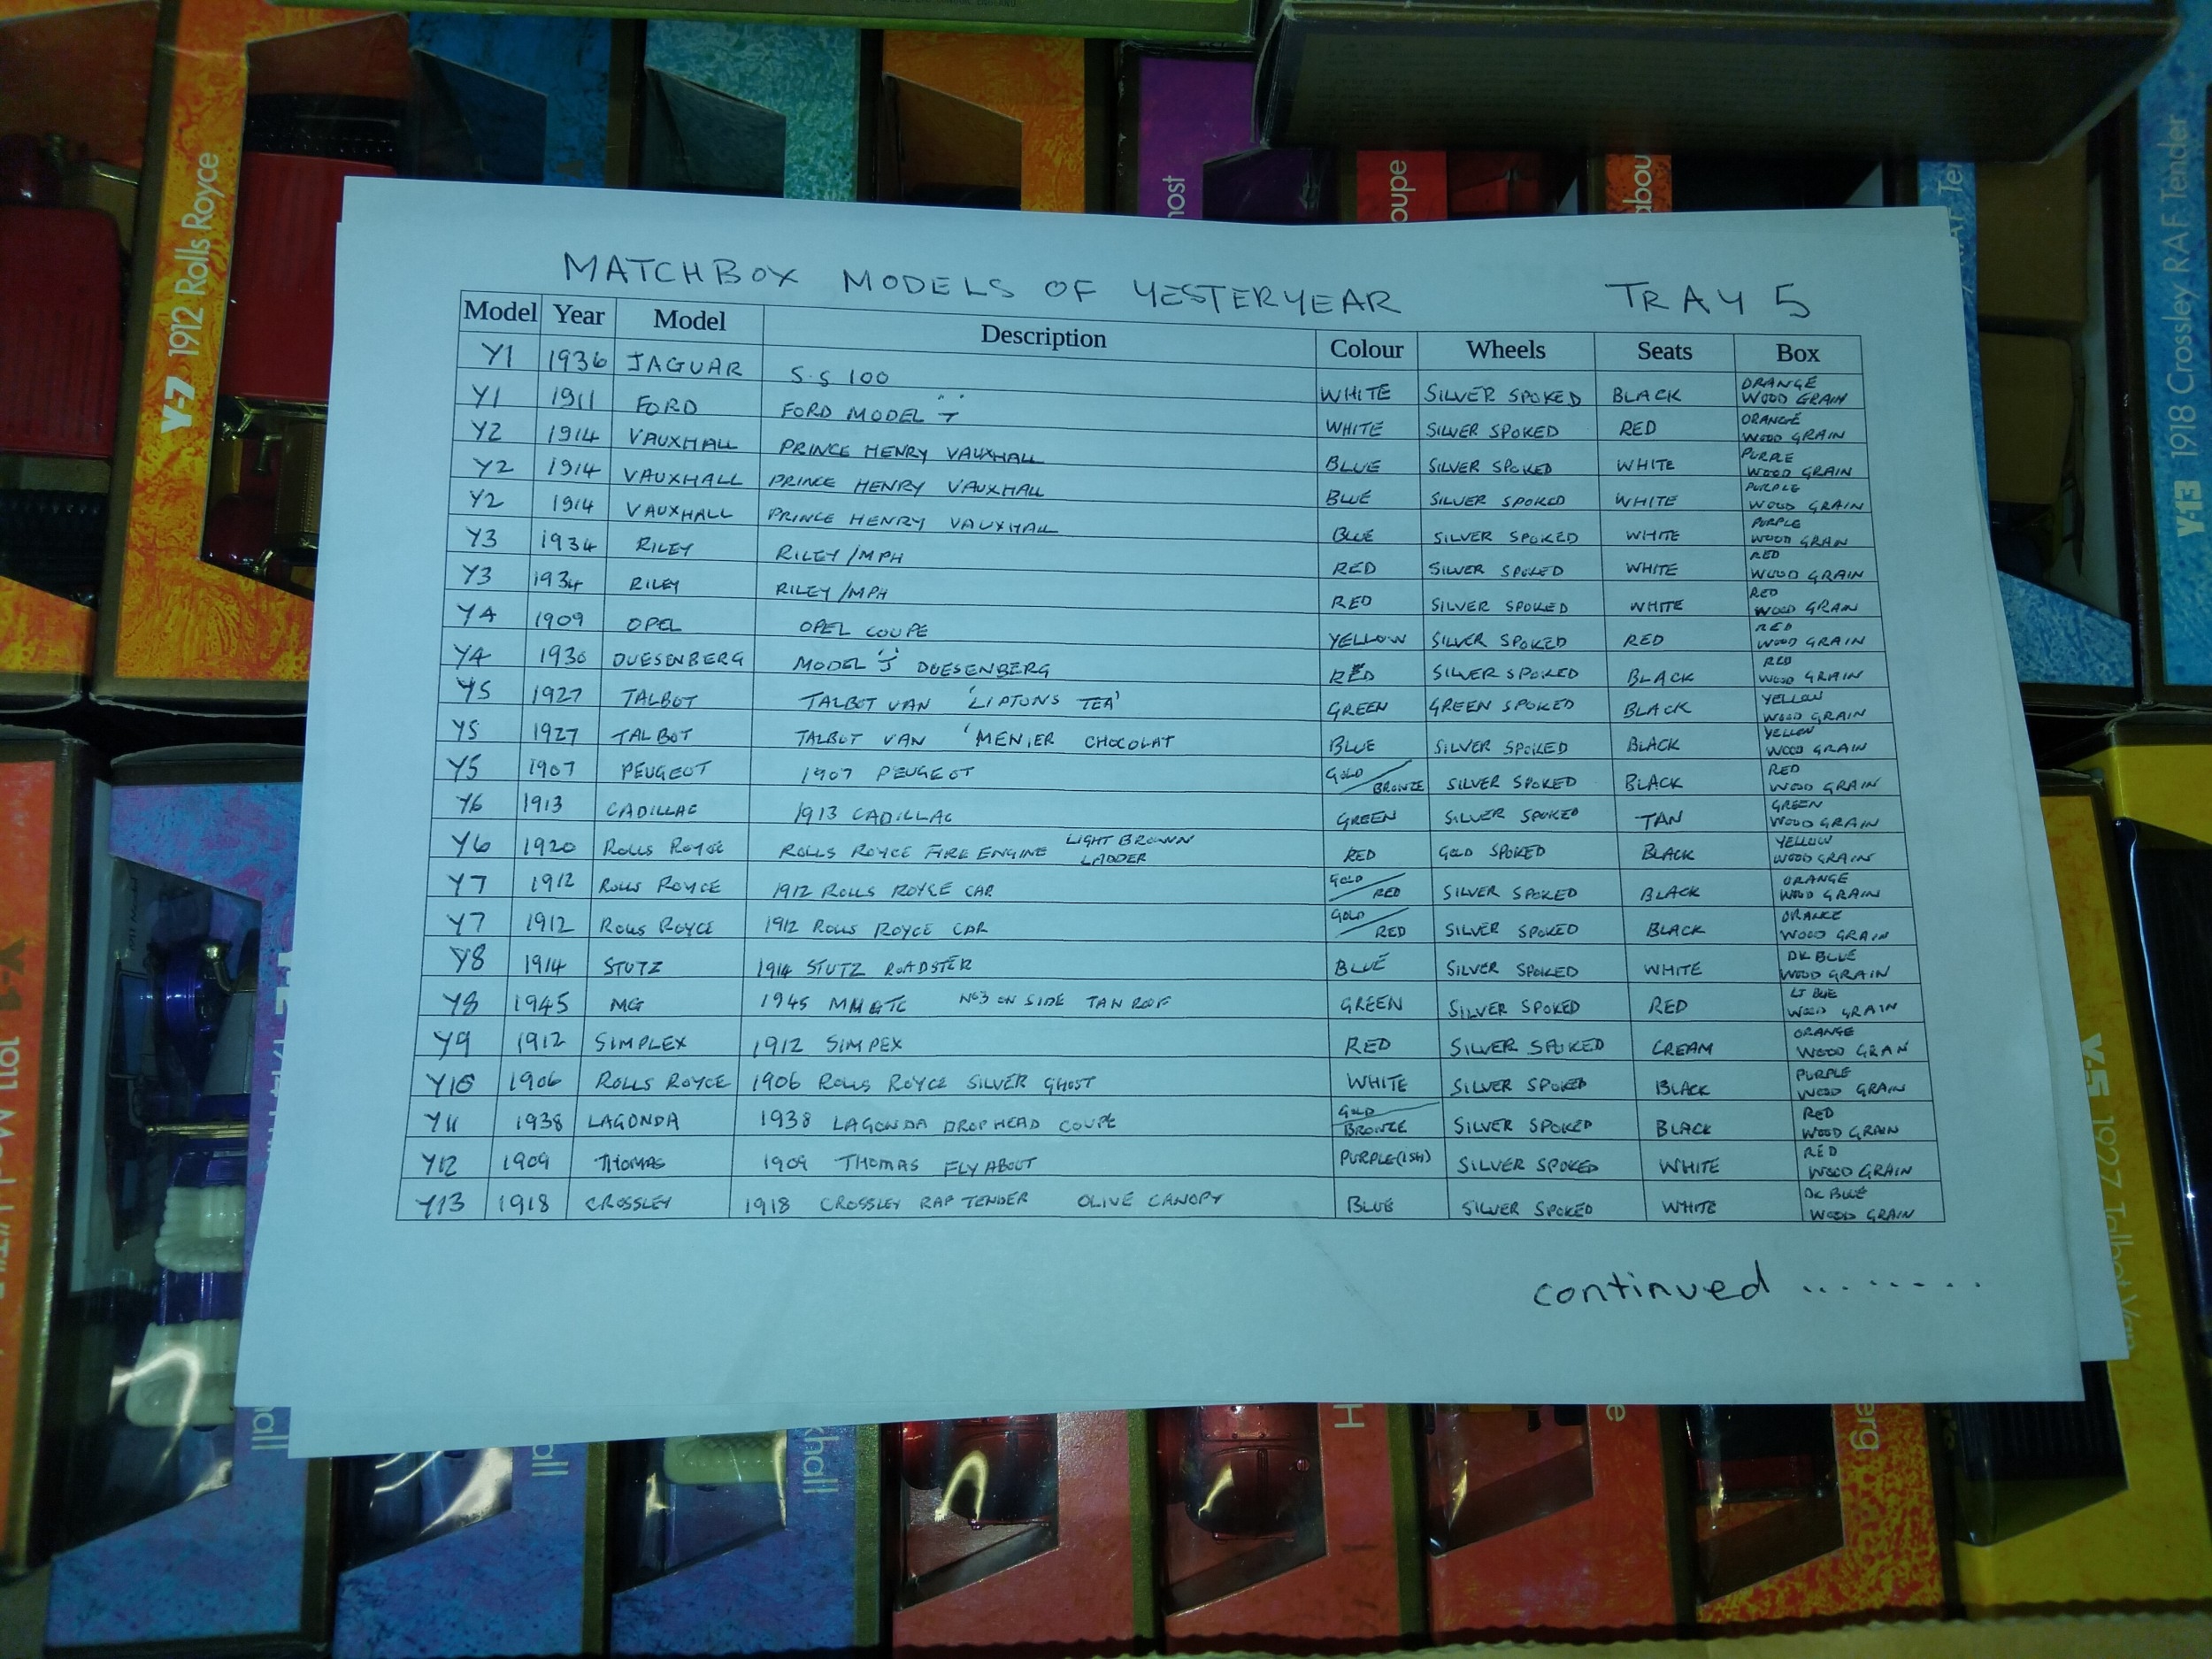 Y-7 1912 Rolls Royce
host
oupe
abou
AF Ter
Y-13 1918 Crossley RAF Tender
MATCHBOX MODELS OF YESTERYEAR TRAY 5
Model Year Model Description Colour Wheels Seats Box
Y1 1936 JAGUAR S.S 100 WHITE SILVER SPOKED BLACK ORANGE WOOD GRAIN
Y1 1911 FORD FORD MODEL "T" WHITE SILVER SPOKED RED ORANGE WOOD GRAIN
Y2 1914 VAUXHALL PRINCE HENRY VAUXHALL BLUE SILVER SPOKED WHITE PURPLE WOOD GRAIN
Y2 1914 VAUXHALL PRINCE HENRY VAUXHALL BLUE SILVER SPOKED WHITE PURPLE WOOD GRAIN
Y2 1914 VAUXHALL PRINCE HENRY VAUXHALL BLUE SILVER SPOKED WHITE PURPLE WOOD GRAIN
Y3 1934 RILEY RILEY/MPH RED SILVER SPOKED WHITE RED WOOD GRAIN
Y3 1934 RILEY RILEY/MPH RED SILVER SPOKED WHITE RED WOOD GRAIN
Y4 1909 OPEL OPEL COUPE YELLOW SILVER SPOKED RED RED WOOD GRAIN
Y4 1930 DUESENBERG MODEL 'J' DUESENBERG RED SILVER SPOKED BLACK RED WOOD GRAIN
Y5 1927 TALBOT TALBOT VAN 'LIPTONS TEA' GREEN GREEN SPOKED BLACK YELLOW WOOD GRAIN
Y5 1927 TALBOT TALBOT VAN 'MENIER CHOCOLAT BLUE SILVER SPOKED BLACK YELLOW WOOD GRAIN
Y5 1907 PEUGEOT 1907 PEUGEOT GOLD/BRONZE SILVER SPOKED BLACK RED WOOD GRAIN
Y6 1913 CADILLAC 1913 CADILLAC GREEN SILVER SPOKED TAN GREEN WOOD GRAIN
Y6 1920 ROLLS ROYCE ROLLS ROYCE FIRE ENGINE LIGHT BROWN LADDER RED GOLD SPOKED BLACK YELLOW WOOD GRAIN
Y7 1912 ROLLS ROYCE 1912 ROLLS ROYCE CAR GOLD/RED SILVER SPOKED BLACK ORANGE WOOD GRAIN
Y7 1912 ROLLS ROYCE 1912 ROLLS ROYCE CAR GOLD/RED SILVER SPOKED BLACK ORANGE WOOD GRAIN
Y8 1914 STUTZ 1914 STUTZ ROADSTER BLUE SILVER SPOKED WHITE DK BLUE WOOD GRAIN
Y8 1945 MG 1945 TC No3 ON SIDE TAN ROOF GREEN SILVER SPOKED RED LT BLUE WOOD GRAIN
Y9 1912 SIMPLEX 1912 SIMPEX RED SILVER SPOKED CREAM ORANGE WOOD GRAN
Y10 1906 ROLLS ROYCE 1906 ROLLS ROYCE SILVER GHOST WHITE SILVER SPOKED BLACK PURPLE WOOD GRAIN
Y11 1938 LAGONDA 1938 LAGONDA DROPHEAD COUPE GOLD/BRONZE SILVER SPOKED BLACK RED WOOD GRAIN
Y12 1909 THOMAS 1909 THOMAS FLYABOUT PURPLE(ISH) SILVER SPOKED WHITE RED WOOD GRAIN
Y13 1918 CROSSLEY 1918 CROSSLEY RAF TENDER OLIVE CANOPY BLUE SILVER SPOKED WHITE DK BLUE WOOD GRAIN
continued ........
Y-1 1911 Model 'T' F
Y-5 1927 Talbot Van
all
all
khall
H
e
erg